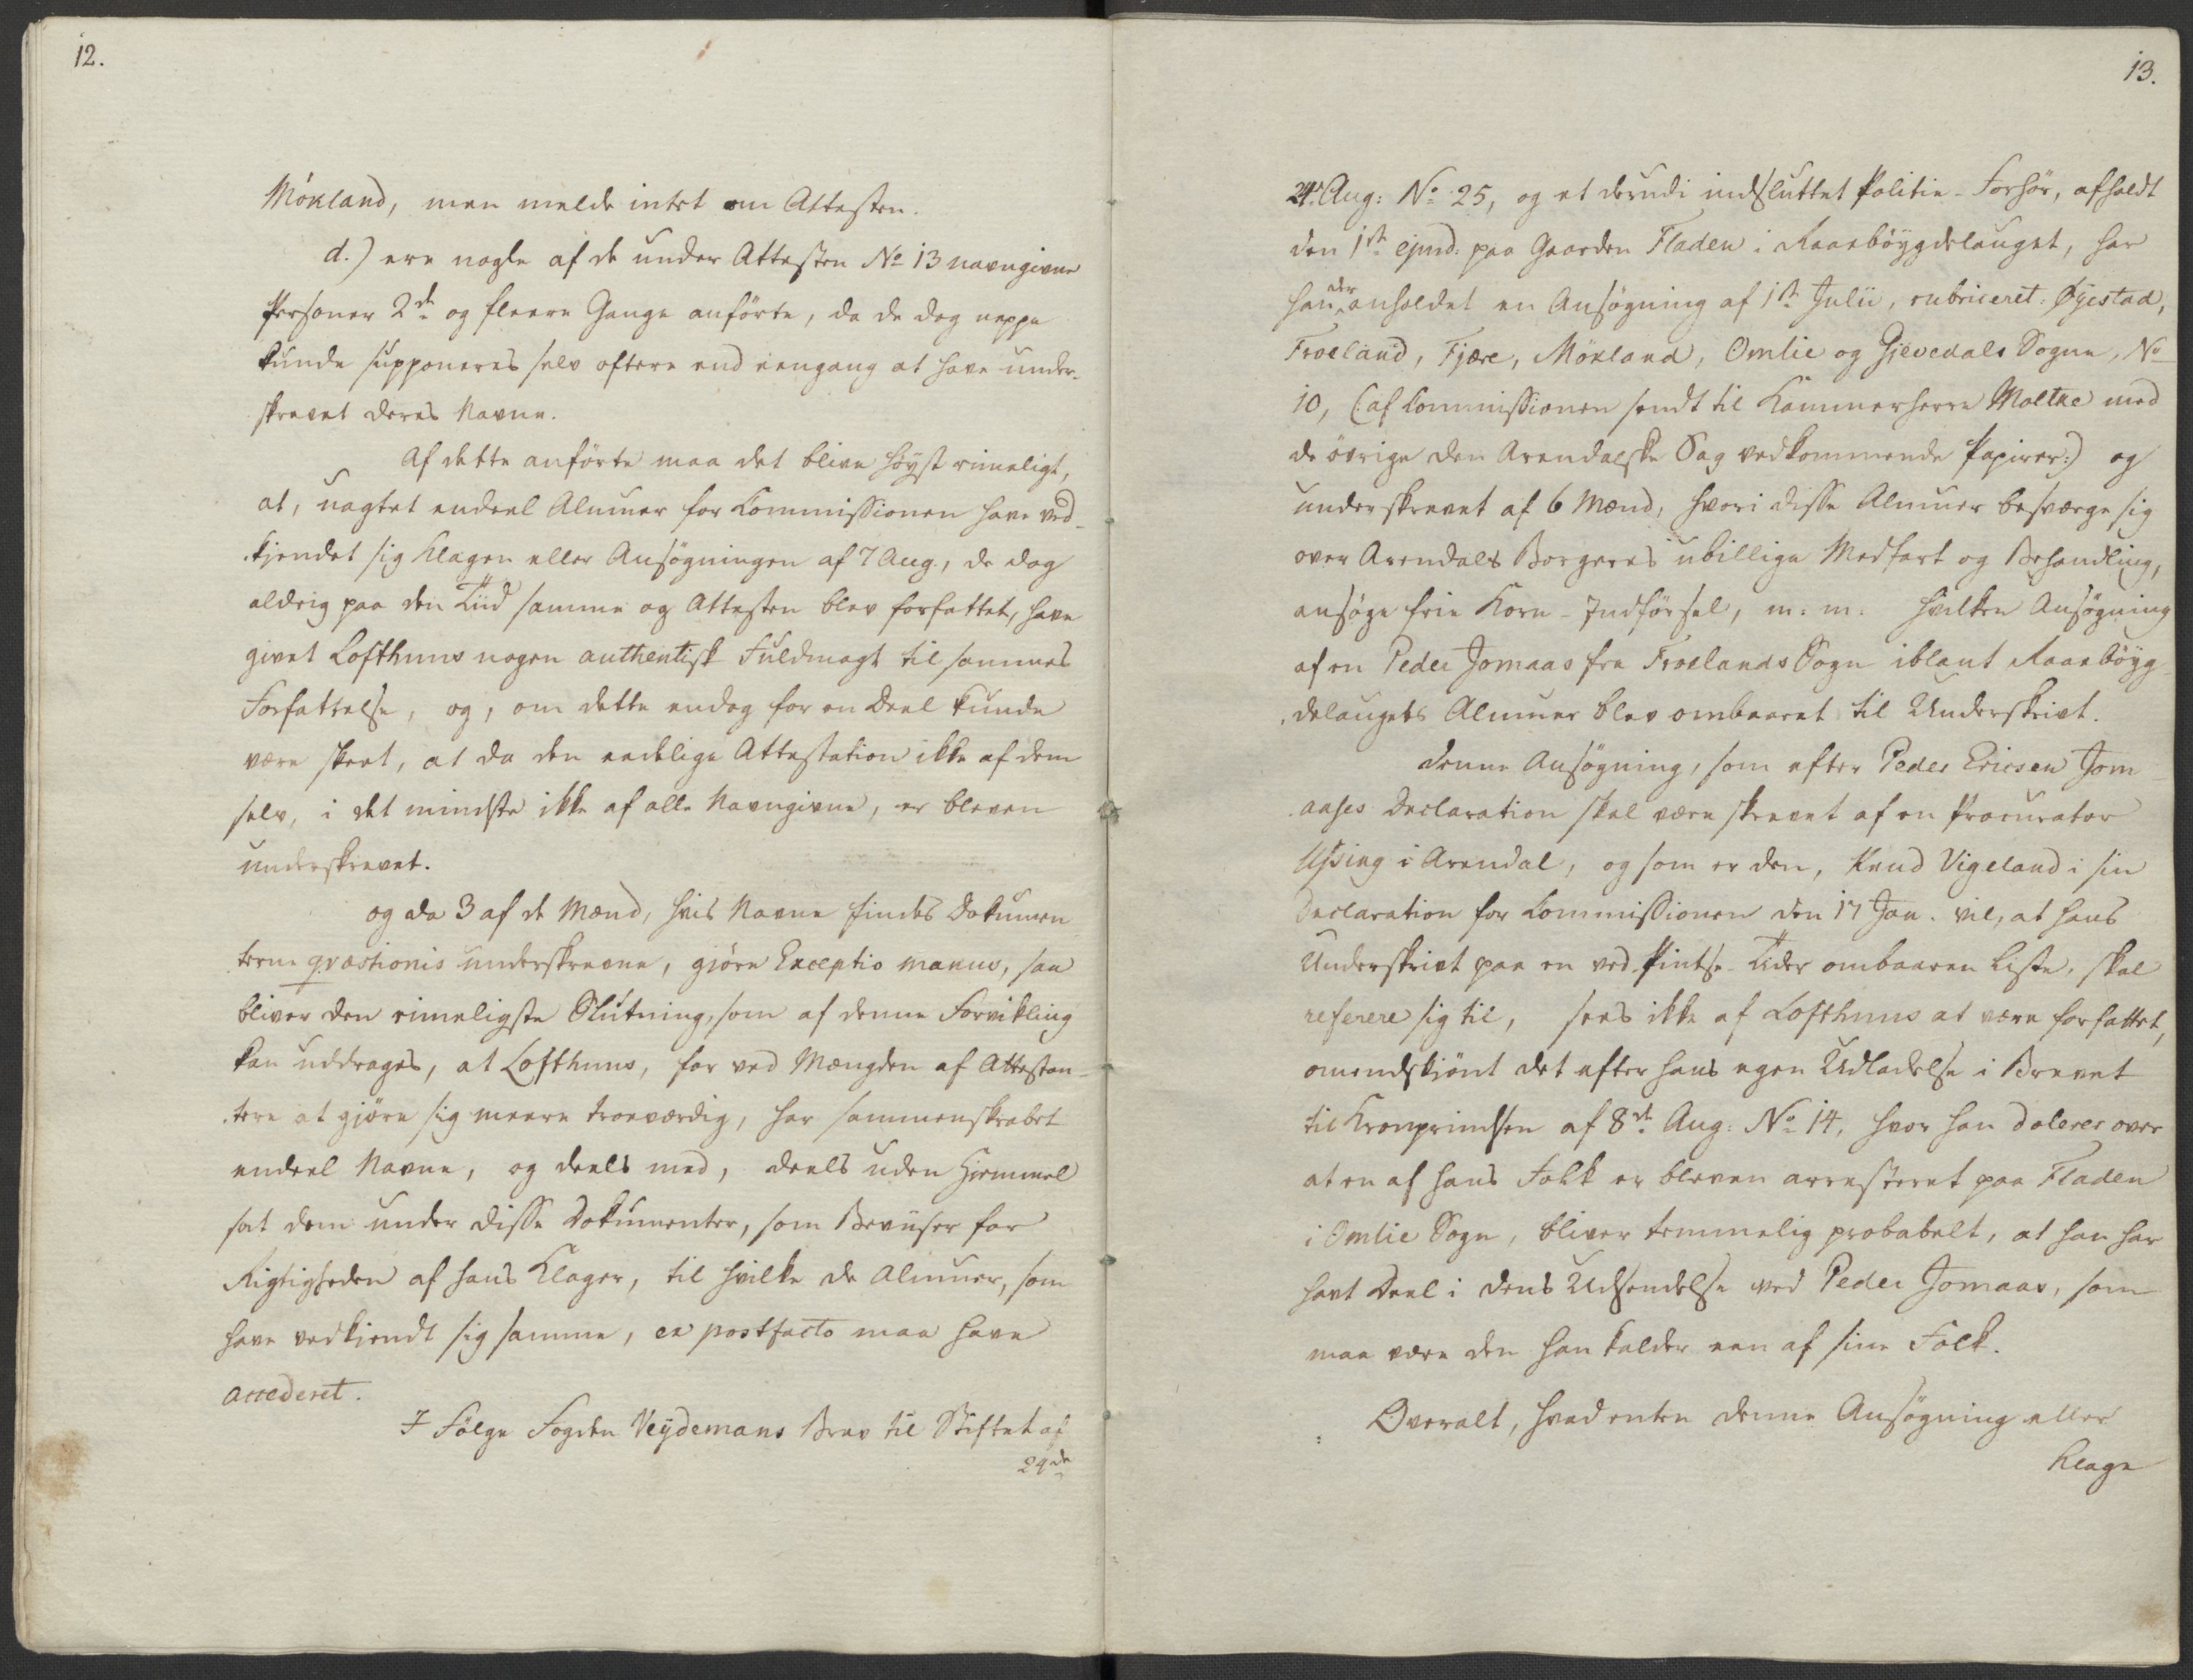 12.
Mökland, men melde intet om Attesten.
d.) ere nogle af de under Attesten No 13 navngivne
Personer 2de og fleere Gange anförte, da de dog neppe
kunde supponeres selv oftere end eengang at have under-
skrevet deres Navne.
Af dette anförte maa det blive höyst rimeligt,
at, uagtet endeel Almuer for Commissionen have ved-
kjendet sig Klagen eller Ansögningen af 7 Aug., de dog
aldrig paa den Tiid samme og Attesten blev forfattet, have
givet Lofthuus nogen authentisk Fuldmagt til sammes
Forfattelse, og, om dette endog for en Deel kunde
være skeet, at da den eedelige Attestation ikke af dem
selv, i det mindste ikke af alle Navngivne, er bleven
underskrevet.
og da 3 af de Mænd, hvis Navne findes Dokumen
terne qvæstionis underskrevne, gjöre Exceptio manus, saa
bliver den rimeligste Slutning, som af denne Forvikling
kan uddrages, at Lofthuus, for ved Mængden af Attestan-
tere at gjöre sig meere troeværdig, har sammenskrabet
endeel Navne, og deels med, deels uden Hiemmel
sat dem under disse Dokumenter, som Beviiser for
Rigtigheden af hans Klager, til hvilke de Almuer, som
have vedkiendt sig samme, ex postfacto maa have
accederet.
I Fölge Fogden Weydemans Brev til Stiftet af
24de
13.
24de Aug: No 25, og et derudi indsluttet Politie-Forhör, afholdt
den 1ste ejusd: paa Gaarden Fladen i Raaebøygdelauget, har
han der anholdet en Ansögning af 1ste Julii, rubriceret: Øyestad,
Froeland, Fjære, Mökland, Omlie og Gjevedals Sogne, No
10, (: af Commissionen sendt til Kammerherre Moltke med
de övrige den Arendalske Sag vedkommende Papirer:) og
underskrevet af 6 Mænd, hvori disse Almuer besværge sig
over Arendals Borgeres ubillige Medfart og Behandling,
ansöge frie Korn-Indförsel, m: m: hvilken Ansögning
af en Peder Jomaas fra Froelands Sogn iblant Raaebøyg-
delaugets Almuer blev ombaaret til Underskrivt.
Denne Ansögning, som efter Peder Ericsen Jom-
aases Declaration skal være skrevet af en Procurator
Ussing i Arendal, og som er den, Knud Vigeland i sin
Declaration for Commissionen den 17 Jan. vil, at hans
Underskrivt paa en ved Pintse-Tider ombaaren Liste, skal
referere sig til, sees ikke af Lofthuus at være forfattet,
omendskiönt det efter hans egen Udladelse i Brevet
til Kronprindsen af 8de Aug: No 14, hvor han dolerer over
at en af hans Folk er bleven arresteret paa Fladen
i Omlie Sogn, bliver temmelig probabelt, at han har
havt Deel i dens Udsendelse ved Peder Jomaas, som
maa være den han kalder een af sine Folk.
Overalt, hvad enten denne Ansögning eller
Klage